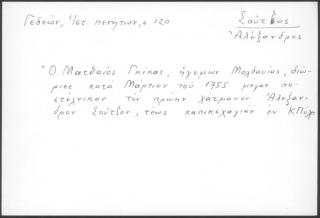 Γεδεών, ἔ/στ. πενήτων, σ 120
Σοῦτζος
Ἀλέξανδρος
"Ὁ Ματθαῖος Γκίκας, ἡγεμὼν Μολδαυΐας, διώ-
ρισε κατὰ Μάρτιον τοῦ 1755 μέγαν πο-
στέλνικον τὸν πρώην χάτμανον Ἀλέξαν-
δρον Σοῦτζον, τέως καπικεχαγιᾶν ἐν Κ/Πόλει